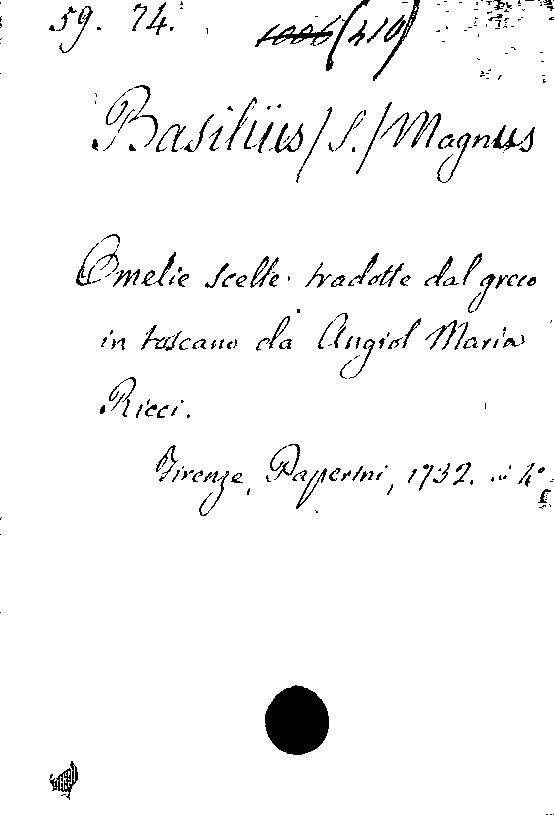 59. 74. 1006 (210)
Basilius /S./ Magnus
Omelie scelte tradotte dal greco
in toscano da Angiol Maria
Ricci.
Firenze, Paperini, 1732. in 4°